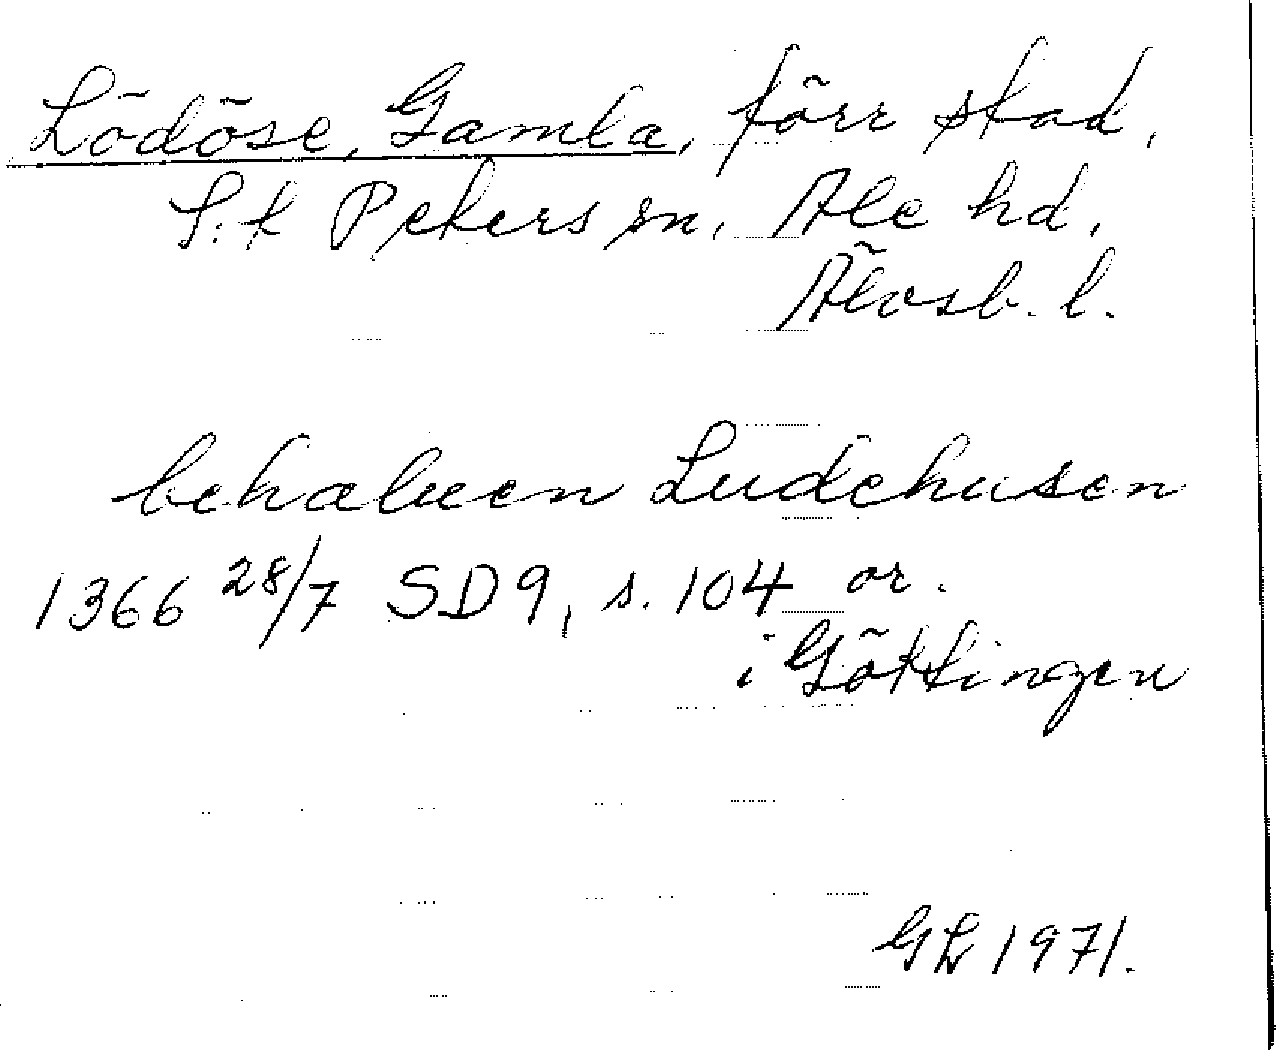 Lödöse, Gamla, förr stad,
S:t Peters sn, Ale hd,
Älvsb. l.
behalueen Ludehusen
1366 28/7 SD 9, s. 104 or.
i Göttingen
GL 1971.